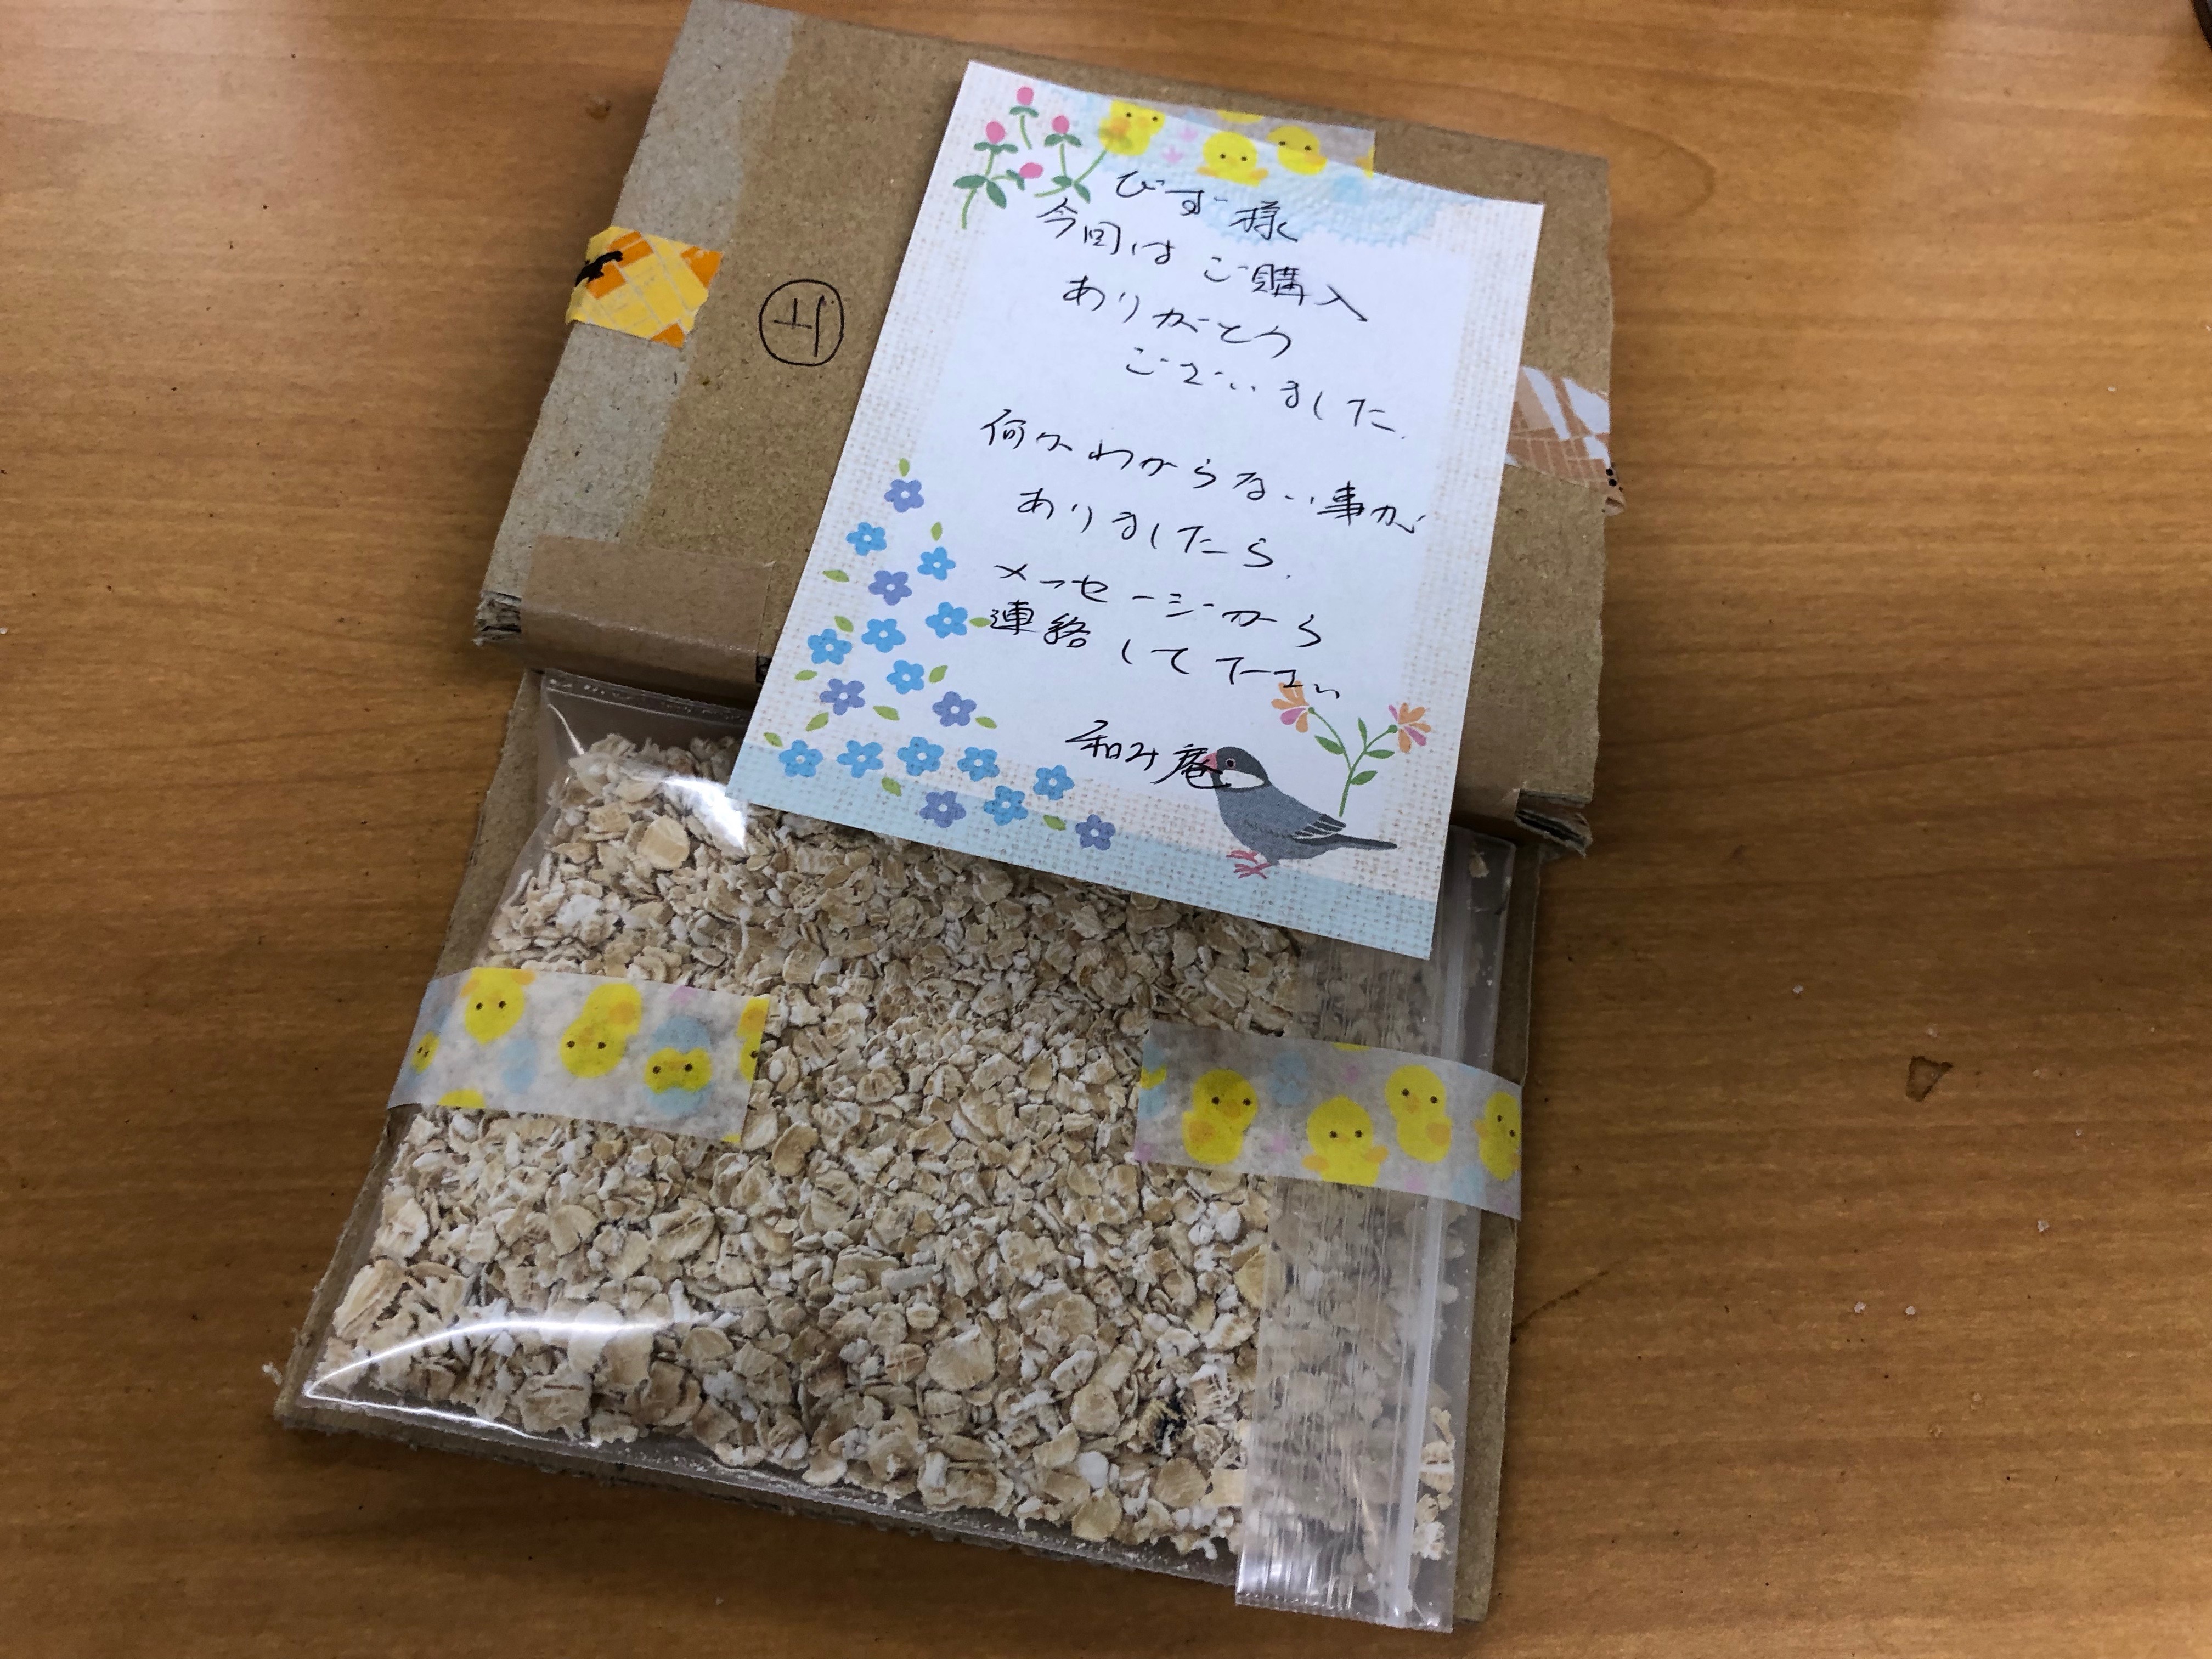 びず様
今回はご購入
ありがとう
ございました.
何かわからない事が
ありましたら.
メッセージから
連絡して下さい
和み庵
上